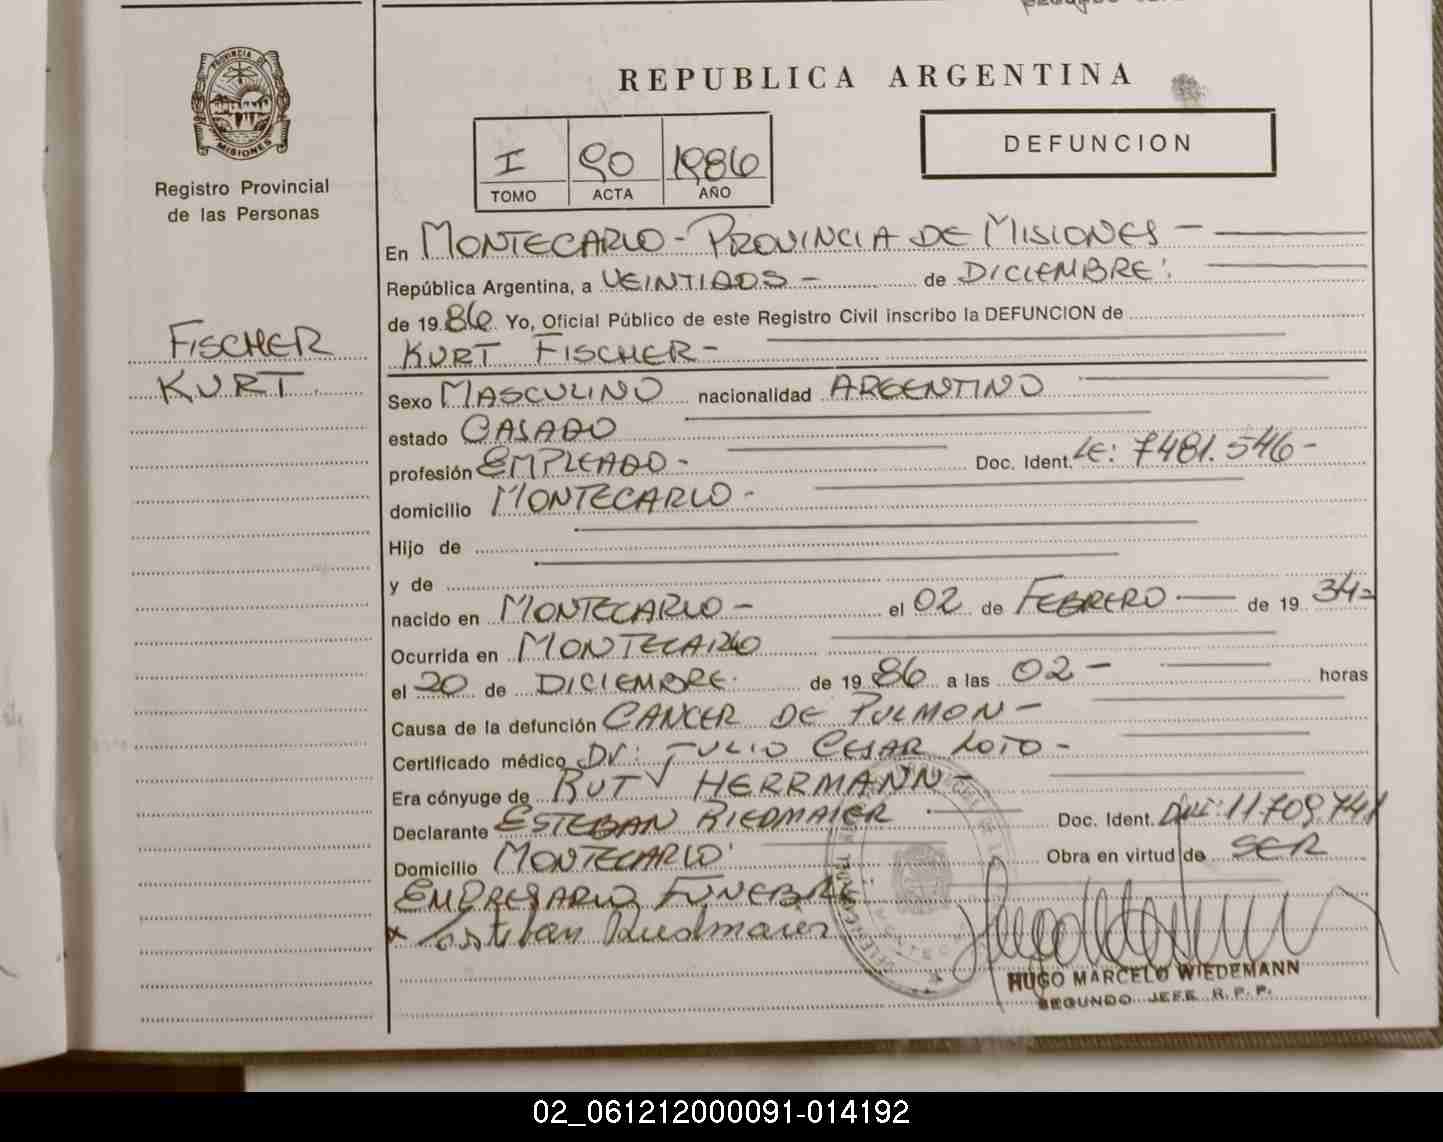 REPUBLICA ARGENTINA
PROVINCIA DE
MISIONES
Registro Provincial
de las Personas
I 90 1986
TOMO ACTA AÑO
DEFUNCION
FISCHER
KURT
En MONTECARLO - PROVINCIA DE MISIONES -
República Argentina, a VEINTIDOS - de DICIEMBRE
de 19 86 Yo, Oficial Público de este Registro Civil inscribo la DEFUNCION de
KURT FISCHER -
Sexo MASCULINO nacionalidad ARGENTINO
estado CASADO
profesión EMPLEADO - Doc. Ident. LE: 7481.546 -
domicilio MONTECARLO -
Hijo de
y de
nacido en MONTECARLO - el 02 de FEBRERO de 19 34-
Ocurrida en MONTECARLO
el 20 de DICIEMBRE de 19 86 a las 02 - horas
Causa de la defunción CANCER DE PULMON -
Certificado médico Dr: JULIO CESAR LOTO -
Era cónyuge de RUT HERRMANN -
Declarante ESTEBAN RIEDMAIER Doc. Ident. DNI: 11.709.741
Domicilio MONTECARLO Obra en virtud de SER
EMPRESARIO FUNEBRE
x Esteban Riedmaier
HUGO MARCELO WIEDEMANN
SEGUNDO JEFE R. P. P.
02_061212000091-014192